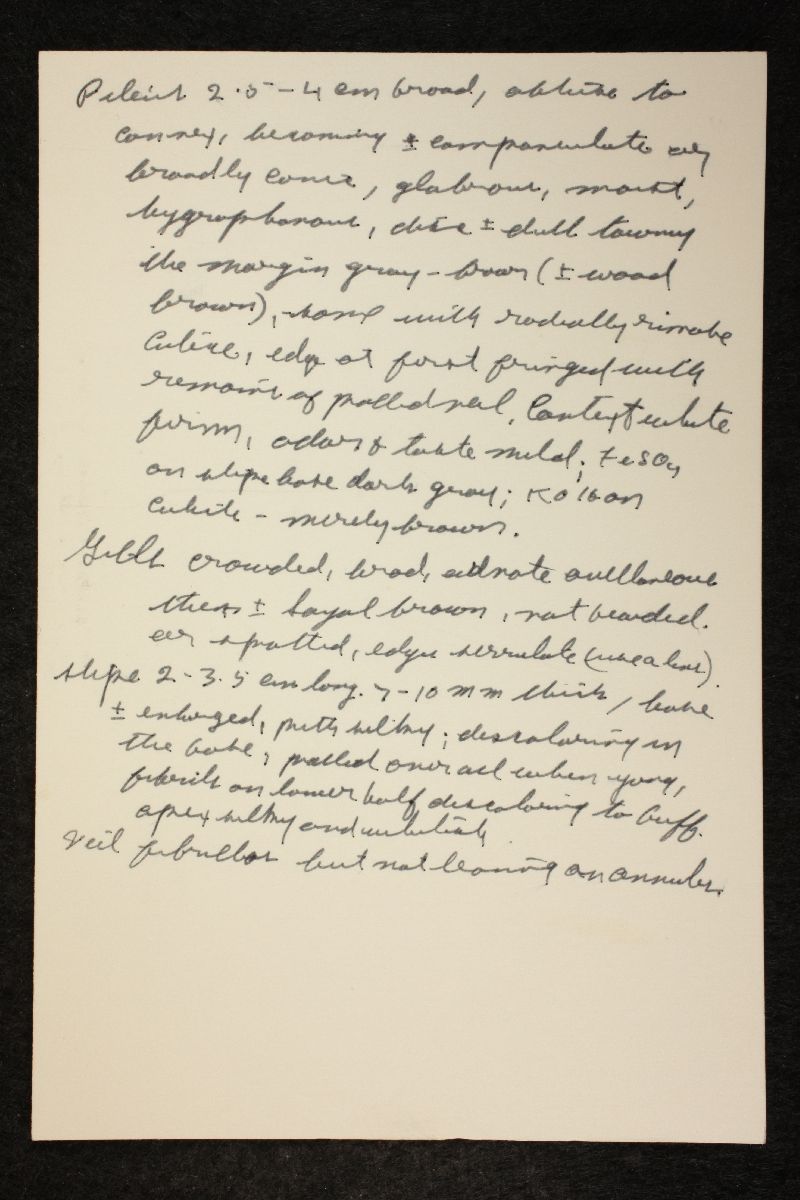 Pileus 2.5-4 cm broad, obtuse to
convex, becoming ± campanulate or
broadly conic, glabrous, moist,
hygrophanous, disc ± dull tawny
the margin gray-brown (± wood
brown), some with radially rimose
cuticle, edge at first fringed with
remains of pallid veil. Context white
firm, odor & taste mild; FeSO4
on stipe base dark gray; KOH on
cuticle - merely brown.
Gills crowded, broad, adnate avellaneous
then ± sayal brown, not beaded.
or spotted, edges serrulate (use a lens).
stipe 2-3.5 cm long. 7-10 mm thick, base
± enlarged, pith silky; discoloring in
the base; pallid overall when young,
fibrils on lower half discoloring to buff.
apex silky and whitish
Veil fibrillose but not leaving an annulus.